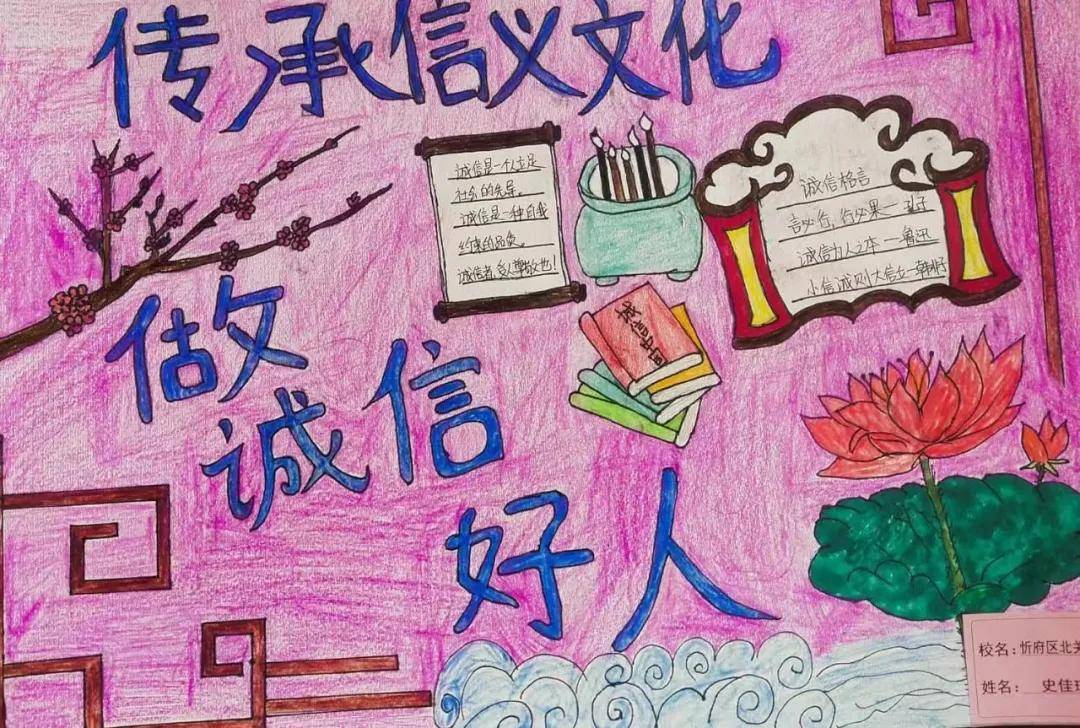 传承信义文化
诚信是一个人立足
社会的先导。
诚信是一种自我
约束的品质。
诚信者,受人尊敬也!
诚信格言
言必行,行必果一孔子
诚信为人之本一鲁迅
小信诚则大信立一韩非子
做
诚信
好人
校名:忻府区北关
姓名:史佳